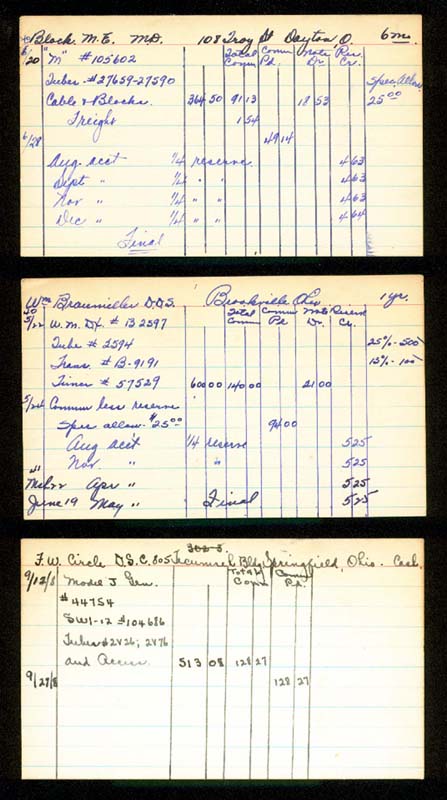 Block. M.E. M.D. 108 Troy St Dayton, O. 6 mo.
Total Comm Comm Pd. Note Dr. Res. Cr.
6/20 "M" #105602
Tubes - #27659-27590 Spec. Allow
Cable & Blocks 364 50 91 13 18 53 25 00
Freight 1 54
6/28 49 14
Aug. acct 1/4 reserve 4 63
Sept " 1/4 " " 4 63
Nov " 1/4 " " 4 63
Dec " 1/4 " " 4 64
Final
Wm Braumiller D.D.S. Brookville Ohio 1 yr.
Total Comm Comm Pd Note Dr. Reserve Cr.
5/22 W.M. DX. # B 2597
Tube # 2594 25% - 500
Trans. # B-9191 15% - 100
Timer # 57529 600 00 140 00 21 00
5/24 Comm less reserve
Spec allow. $25 00 94 00
Aug acct 1/4 reserve 5 25
Nov. " " 5 25
Mch 22 Apr " 5 25
June 19 May " Final 5 25
302-3
F. W. Circle D.S.C. 805 Tecumseh Bldg Springfield, Ohio. Cash
9/12/8 Model J Gen. Total Comm Comm Pd.
#44754
SW1-12 #104686
Tubes #2V26; 2V76
and Access. 513 08 128 27
9/27/8 128 27